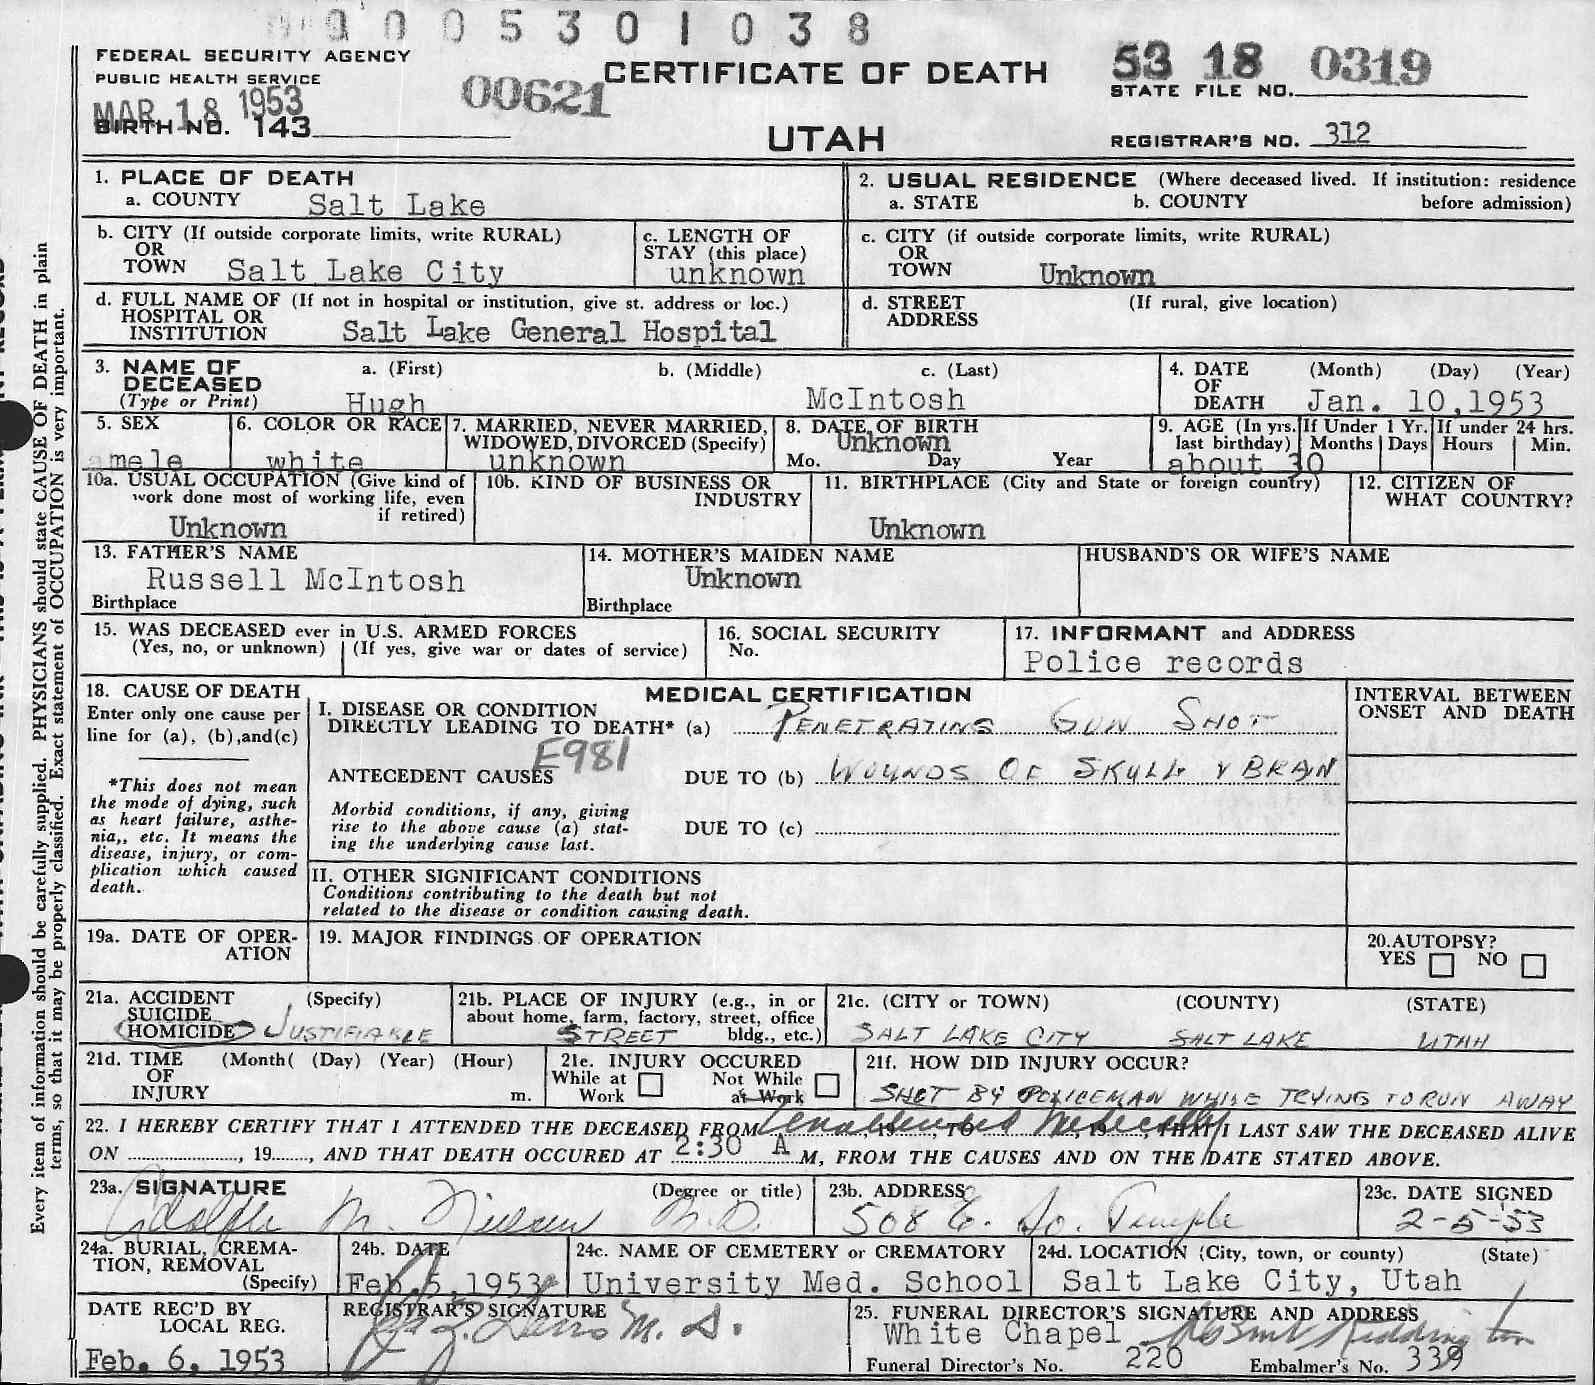 0 0 5 3 0 1 0 3 8
FEDERAL SECURITY AGENCY
PUBLIC HEALTH SERVICE
MAR 18 1953
BIRTH NO. 143
00621
CERTIFICATE OF DEATH
UTAH
53 18 0319
STATE FILE NO.
REGISTRAR'S NO. 312
1. PLACE OF DEATH
a. COUNTY Salt Lake
2. USUAL RESIDENCE (Where deceased lived. If institution: residence
a. STATE b. COUNTY before admission)
b. CITY (If outside corporate limits, write RURAL)
OR
TOWN Salt Lake City
c. LENGTH OF
STAY (this place)
unknown
c. CITY (if outside corporate limits, write RURAL)
OR
TOWN Unknown
d. FULL NAME OF (If not in hospital or institution, give st. address or loc.)
HOSPITAL OR
INSTITUTION Salt Lake General Hospital
d. STREET (If rural, give location)
ADDRESS
3. NAME OF
DECEASED
(Type or Print)
a. (First) b. (Middle) c. (Last)
Hugh McIntosh
4. DATE (Month) (Day) (Year)
OF
DEATH Jan. 10,1953
5. SEX
mele
6. COLOR OR RACE
white
7. MARRIED, NEVER MARRIED,
WIDOWED, DIVORCED (Specify)
unknown
8. DATE OF BIRTH
Unknown
Mo. Day Year
9. AGE (In yrs.
last birthday)
about 30
If Under 1 Yr.
Months Days
If under 24 hrs.
Hours Min.
10a. USUAL OCCUPATION (Give kind of
work done most of working life, even
if retired)
Unknown
10b. KIND OF BUSINESS OR
INDUSTRY
11. BIRTHPLACE (City and State or foreign country)
Unknown
12. CITIZEN OF
WHAT COUNTRY?
13. FATHER'S NAME
Russell McIntosh
Birthplace
14. MOTHER'S MAIDEN NAME
Unknown
Birthplace
HUSBAND'S OR WIFE'S NAME
15. WAS DECEASED ever in U.S. ARMED FORCES
(Yes, no, or unknown) (If yes, give war or dates of service)
16. SOCIAL SECURITY
No.
17. INFORMANT and ADDRESS
Police records
18. CAUSE OF DEATH
Enter only one cause per
line for (a), (b),and(c)
*This does not mean
the mode of dying, such
as heart failure, asthe-
nia,, etc. It means the
disease, injury, or com-
plication which caused
death.
MEDICAL CERTIFICATION
I. DISEASE OR CONDITION
DIRECTLY LEADING TO DEATH* (a) PENETRATING GUN SHOT
E981
ANTECEDENT CAUSES DUE TO (b) WOUNDS OF SKULL & BRAN
Morbid conditions, if any, giving
rise to the above cause (a) stat-
ing the underlying cause last.
DUE TO (c)
II. OTHER SIGNIFICANT CONDITIONS
Conditions contributing to the death but not
related to the disease or condition causing death.
INTERVAL BETWEEN
ONSET AND DEATH
19a. DATE OF OPER-
ATION
19. MAJOR FINDINGS OF OPERATION
20.AUTOPSY?
YES NO
21a. ACCIDENT (Specify)
SUICIDE
HOMICIDE JUSTIFIABLE
21b. PLACE OF INJURY (e.g., in or
about home, farm, factory, street, office
STREET bldg., etc.)
21c. (CITY or TOWN) (COUNTY) (STATE)
SALT LAKE CITY SALT LAKE UTAH
21d. TIME (Month( (Day) (Year) (Hour)
OF
INJURY m.
21e. INJURY OCCURED
While at Not While
Work at Work
21f. HOW DID INJURY OCCUR?
SHOT BY POLICEMAN WHILE TRYING TO RUN AWAY
22. I HEREBY CERTIFY THAT I ATTENDED THE DECEASED FROM Unattended Medically, 19, TO, 19, THAT I LAST SAW THE DECEASED ALIVE
ON , 19, AND THAT DEATH OCCURED AT 2:30 A M, FROM THE CAUSES AND ON THE DATE STATED ABOVE.
23a. SIGNATURE (Degree or title)
Adolph M. Nielsen M.D.
23b. ADDRESS
508 E. So. Temple
23c. DATE SIGNED
2-5-53
24a. BURIAL, CREMA-
TION, REMOVAL
(Specify)
24b. DATE
Feb. 5, 1953
24c. NAME OF CEMETERY OR CREMATORY
University Med. School
24d. LOCATION (City, town, or county) (State)
Salt Lake City, Utah
DATE REC'D BY
LOCAL REG.
Feb. 6, 1953
REGISTRAR'S SIGNATURE
M. D.
25. FUNERAL DIRECTOR'S SIGNATURE AND ADDRESS
White Chapel
Funeral Director's No. 220 Embalmer's No. 339
Every item of information should be carefully supplied. PHYSICIANS should state CAUSE OF DEATH in plain
terms, so that it may be properly classified. Exact statement of OCCUPATION is very important.